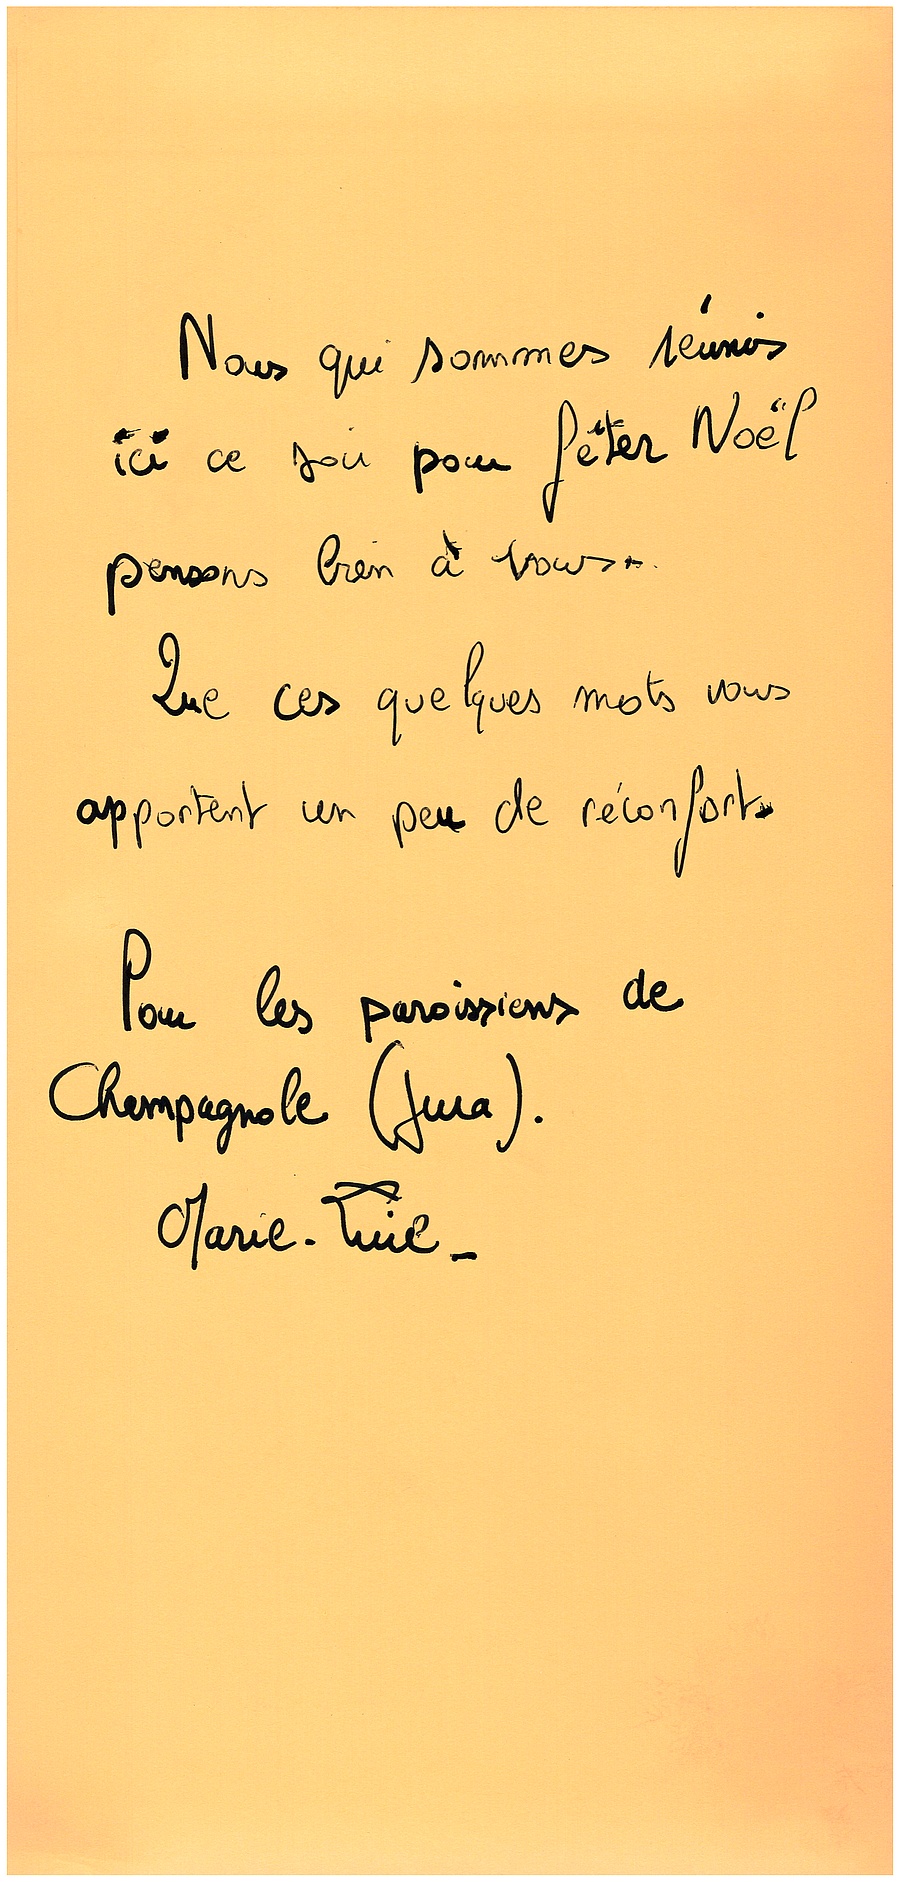 Nous qui sommes réunis
ici ce soir pour fêter Noël
pensons bien à vous..
Que ces quelques mots vous
apportent un peu de réconfort.
Pour les paroissiens de
Champagnole (Jura).
Marie-